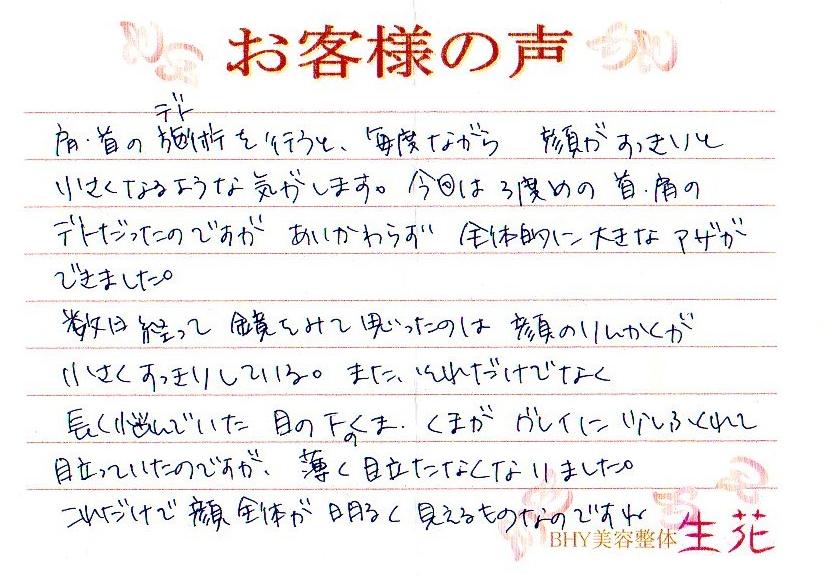 お客様の声
デト
肩・首の施術を行うと、毎度ながら 顔がすっきりと
小さくなるような気がします。今回は3度めの首・肩の
デトだったのですが あいかわらず 全体的に大きなアザが
できました。
数日経って 鏡をみて思ったのは 顔のりんかくが
小さくすっきりしている。また、それだけでなく
長く悩んでいた 目の下のくま。くまが グレイに 少しふくれて
目立っていたのですが、薄く目立たなくなりました。
これだけで顔全体が明るく見えるものなのですね
BHY美容整体 生花